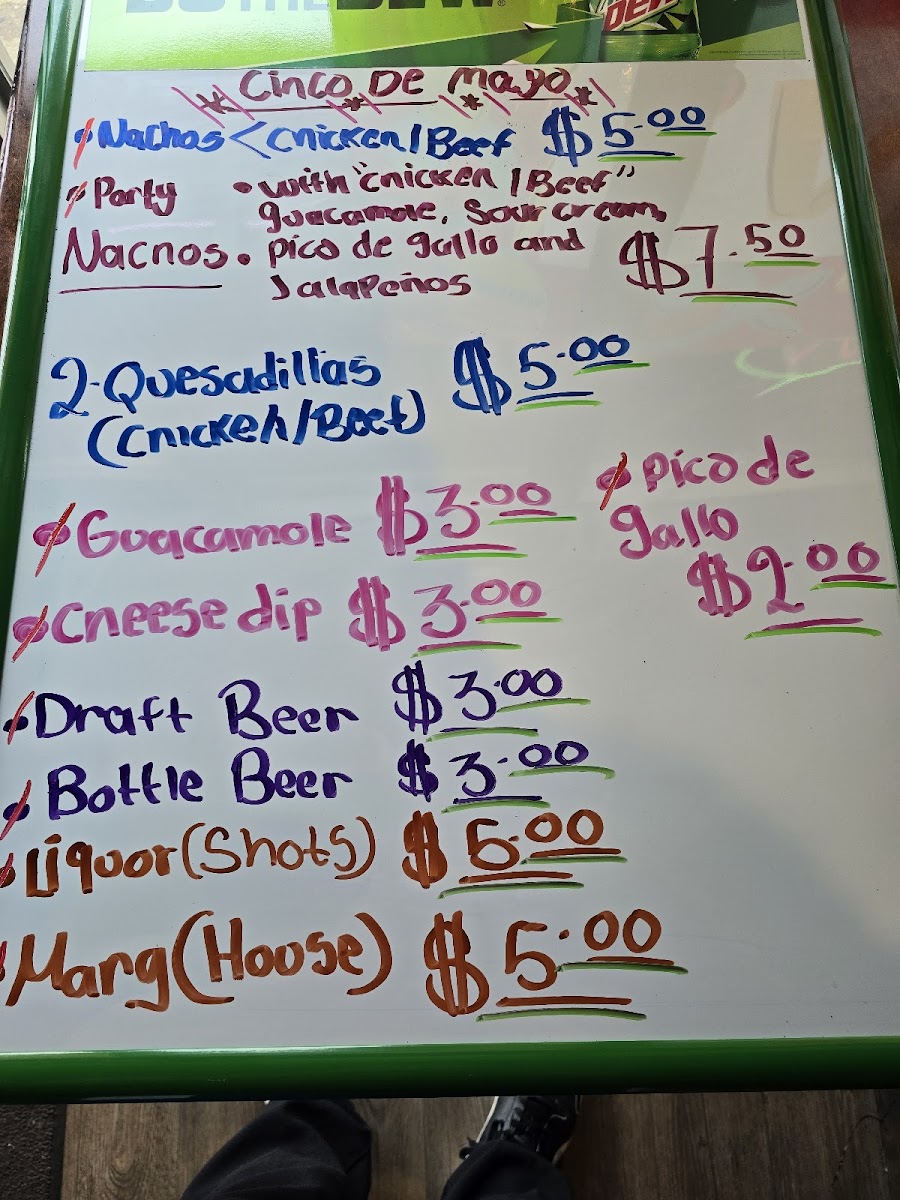 DEW
Cinco De Mayo
Nachos < Chicken/Beef $5.00
Party • with "chicken/Beef"
guacamole, Sour cream,
Nachos • pico de gallo and $7.50
Jalapeños
2-Quesadillas $5.00
(Chicken/Beef)
• Guacamole $3.00
• Pico de
gallo
$2.00
• Cheese dip $3.00
• Draft Beer $3.00
• Bottle Beer $3.00
• Liquor (Shots) $5.00
Marg (House) $5.00